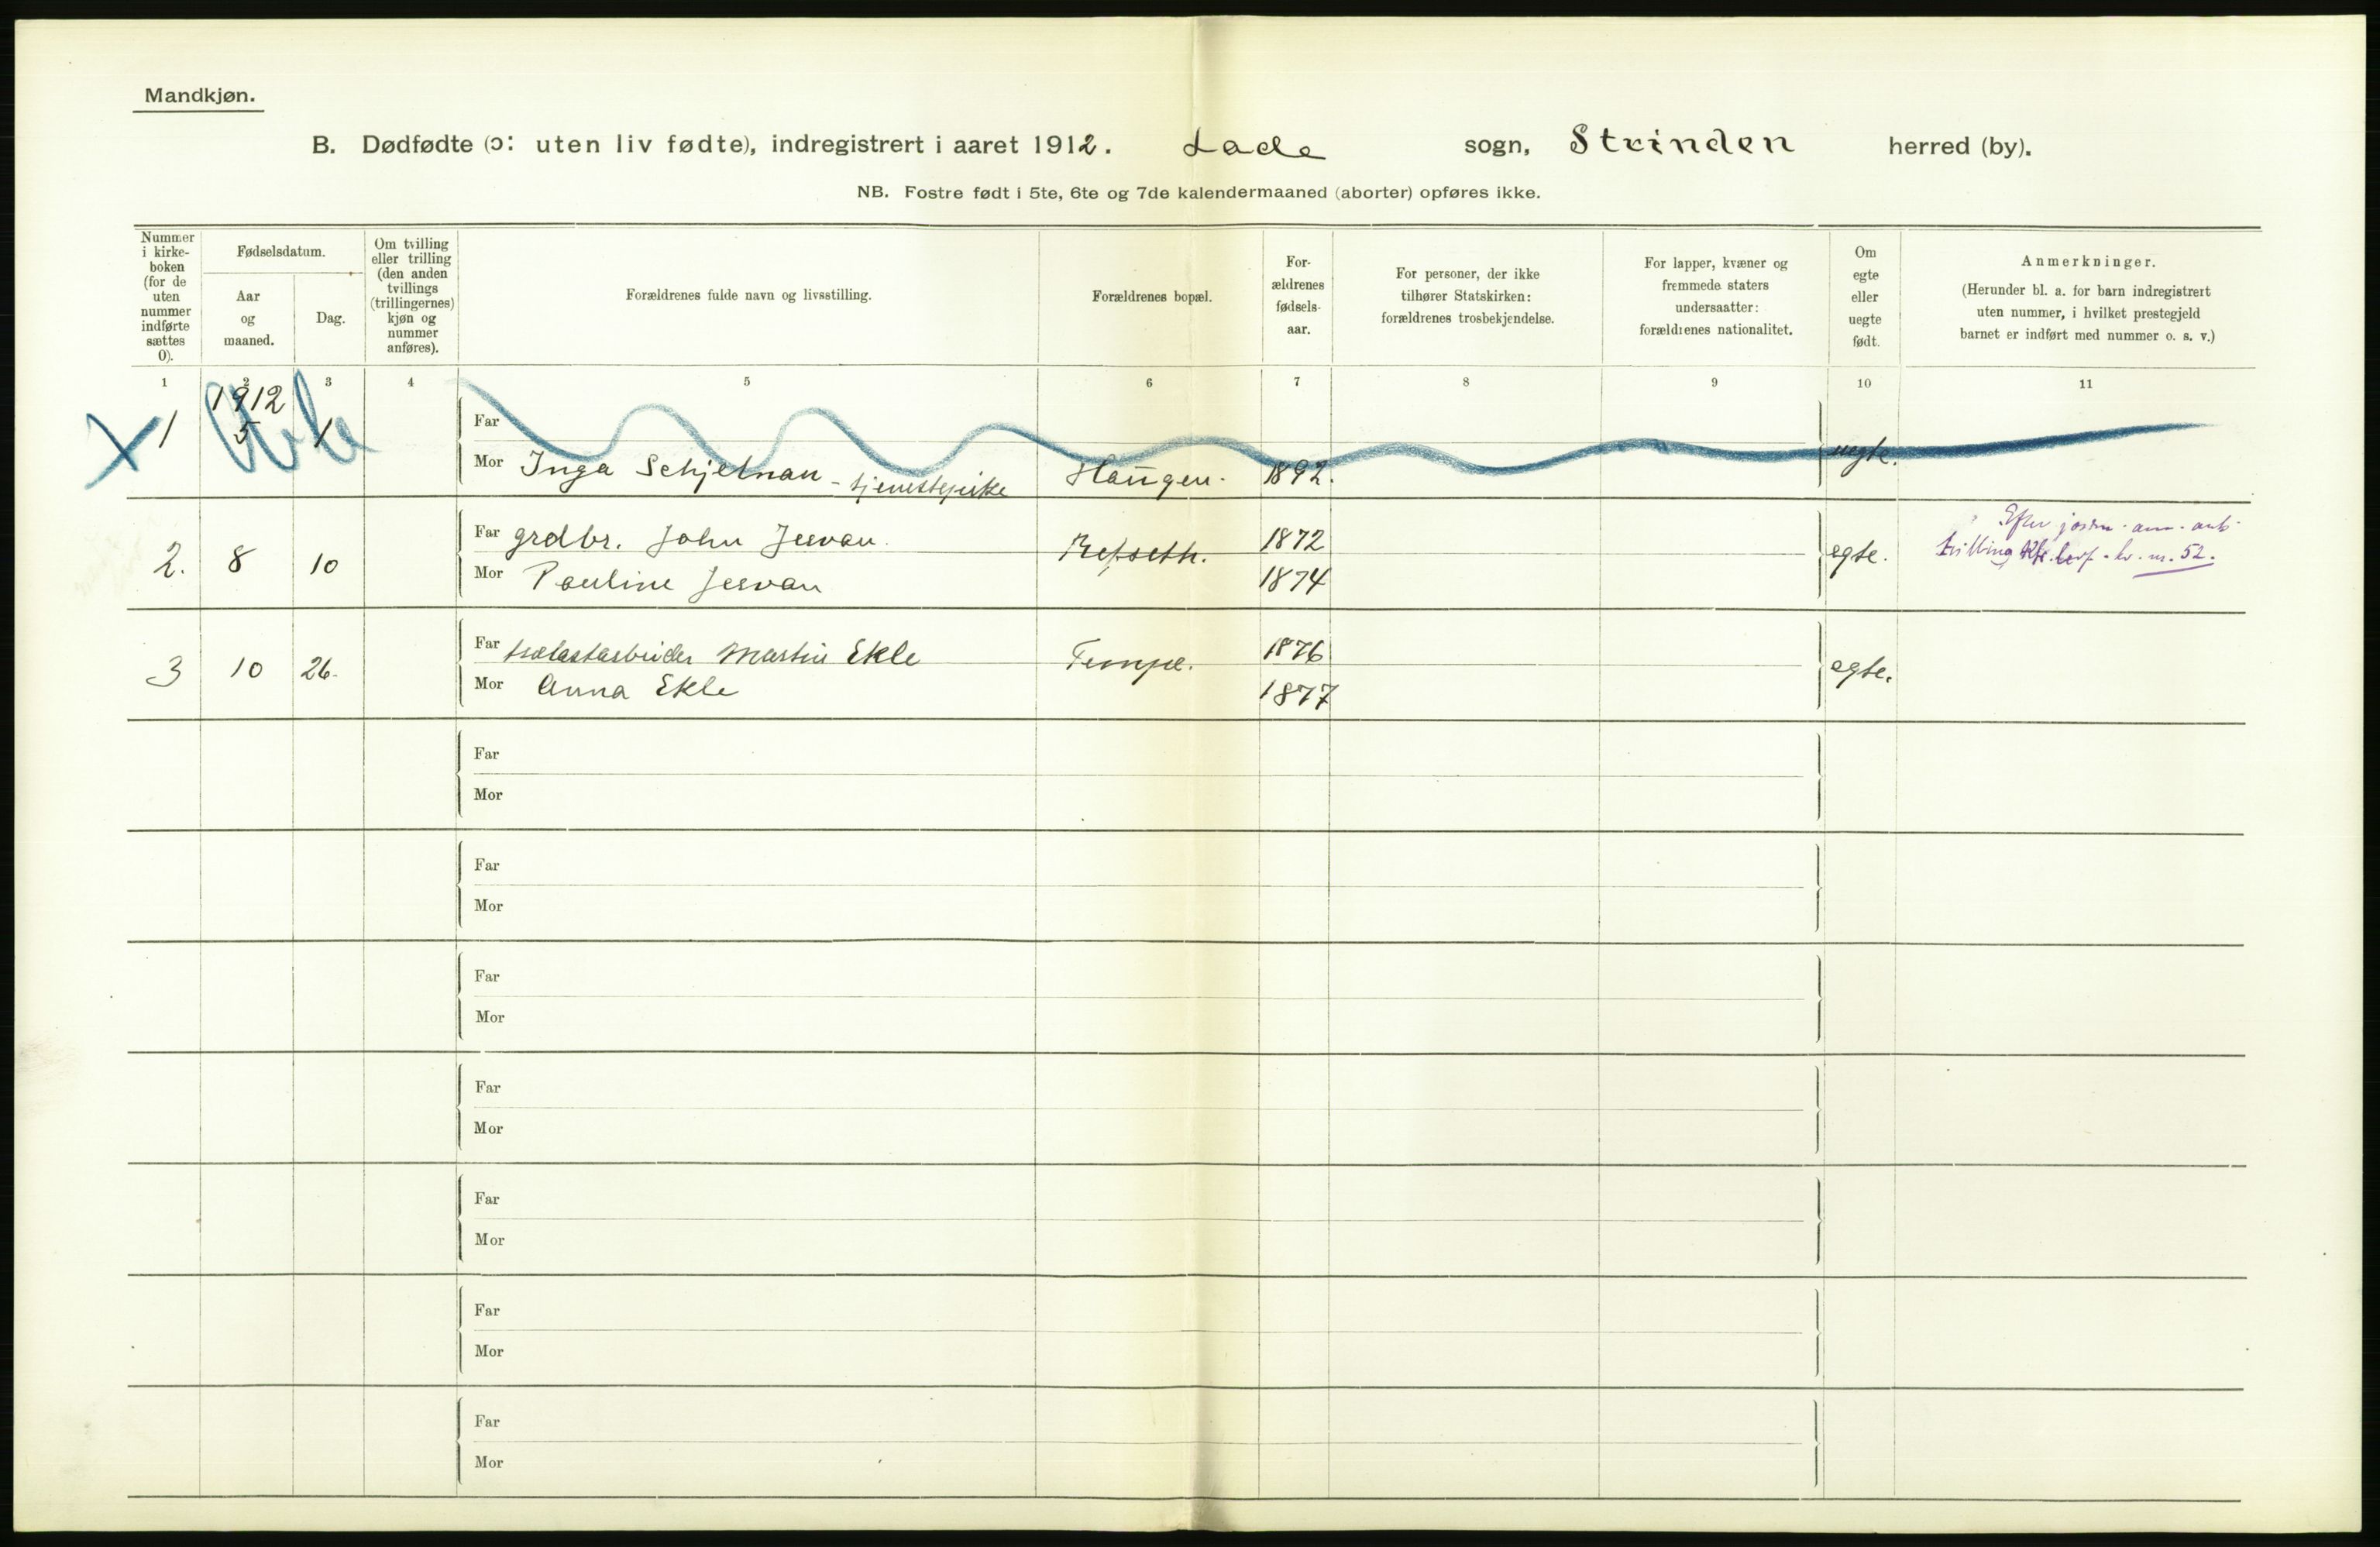 Mandkjøn.
B. Dødfødte (ɔ: uten liv fødte), indregistrert i aaret 1912. Lade sogn, Strinden herred (by).
NB. Fostre født i 5te, 6te og 7de kalendermaaned (aborter) opføres ikke.
Nummer i kirke-boken (for de uten nummer indførte sættes 0).
Fødselsdatum.
Aar og maaned.
Dag.
Om tvilling eller trilling (den anden tvillings (trillingernes) kjøn og nummer anføres).
Forældrenes fulde navn og livsstilling.
Forældrenes bopæl.
For-ældrenes fødsels-aar.
For personer, der ikke tilhører Statskirken: forældrenes trosbekjendelse.
For lapper, kvæner og fremmede staters undersaatter: forældrenes nationalitet.
Om egte eller uegte født.
Anmerkninger.
(Herunder bl. a. for barn indregistrert uten nummer, i hvilket prestegjeld barnet er indført med nummer o. s. v.)
1 2 3 4 5 6 7 8 9 10 11
1912
1 5 1 Far uegte.
Mor Inga Schjelnan - tjenestepike Haugen. 1892.
2. 8 10 Far grdbr. John Jesvan. Refseth. 1872 egte. Efter jordm. anm. antb.
Mor Pauline Jesvan 1874 tvilling lev. m. 52.
3 10 26. Far Martin Ekle Tempe. 1876 egte.
Mor Anna Ekle 1877
Far
Mor
Far
Mor
Far
Mor
Far
Mor
Far
Mor
Far
Mor
Far
Mor